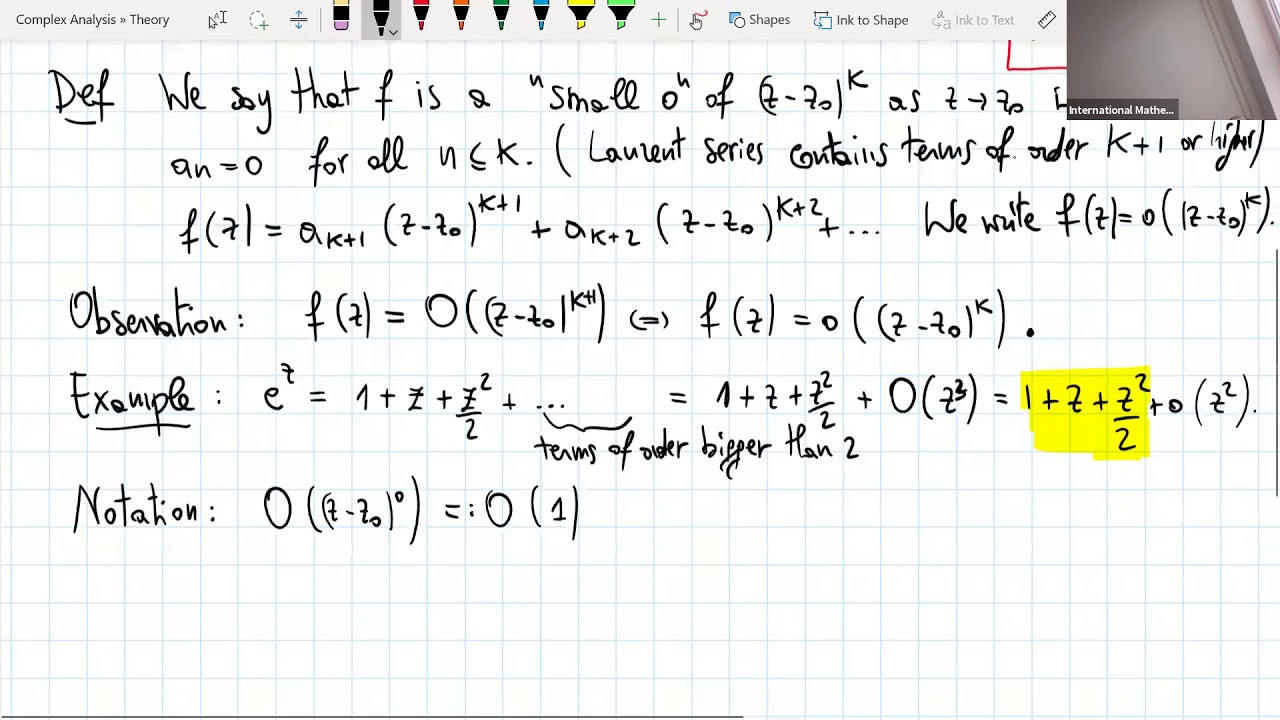 Complex Analysis » Theory
Shapes
Ink to Shape
Ink to Text
International Mathe...
Def We say that f is a "small o" of (z-z₀)^K as z → z₀
an = 0 for all n ≤ K. (Laurent series contains terms of order K+1 or higher)
f(z) = a_{K+1} (z-z₀)^{K+1} + a_{K+2} (z-z₀)^{K+2} + ... We write f(z) = o((z-z₀)^K).
Observation: f(z) = O((z-z₀)^{K+1}) ⇔ f(z) = o((z-z₀)^K).
Example: e^z = 1 + z + z²/2 + ... = 1 + z + z²/2 + O(z³) = 1 + z + z²/2 + o(z²).
terms of order bigger than 2
Notation: O((z-z₀)⁰) =: O(1)